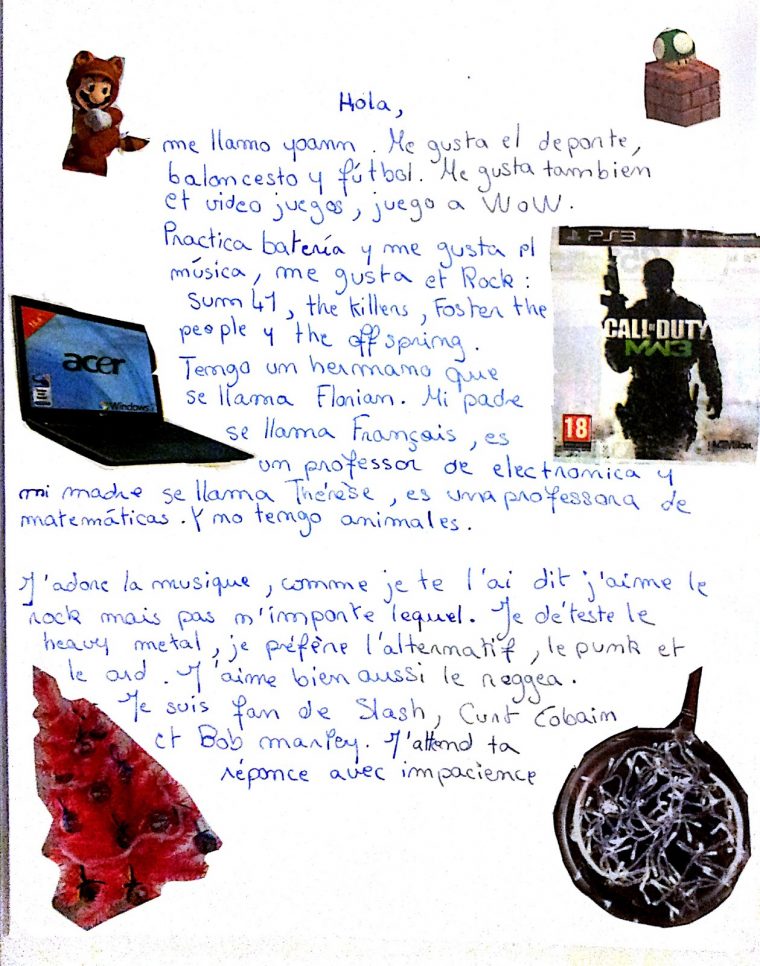 Hola,
me llamo yoann. Me gusta el deporte,
baloncesto y fútbol. Me gusta tambien
et video juegos, juego a WoW.
Practica batería y me gusta el
música, me gusta et Rock :
Sum 41, the killers, Foster the
people y the offspring.
Tengo un hermano que
se llama Florian. Mi padre
se llama Français, es
un professor de electronica y
mi madre se llama Thérèse, es una professora de
matemáticas. Y no tengo animales.
J'adore la musique, comme je te l'ai dit j'aime le
rock mais pas n'importe lequel. Je déteste le
heavy metal, je préfère l'alternatif, le punk et
le ard. J'aime bien aussi le reggea.
Je suis fan de Slash, Curt Cobain
et Bob marley. J'attend ta
réponce avec impacience
acer
Windows
PS3
CALL OF DUTY
MW3
18
ACTIVISION